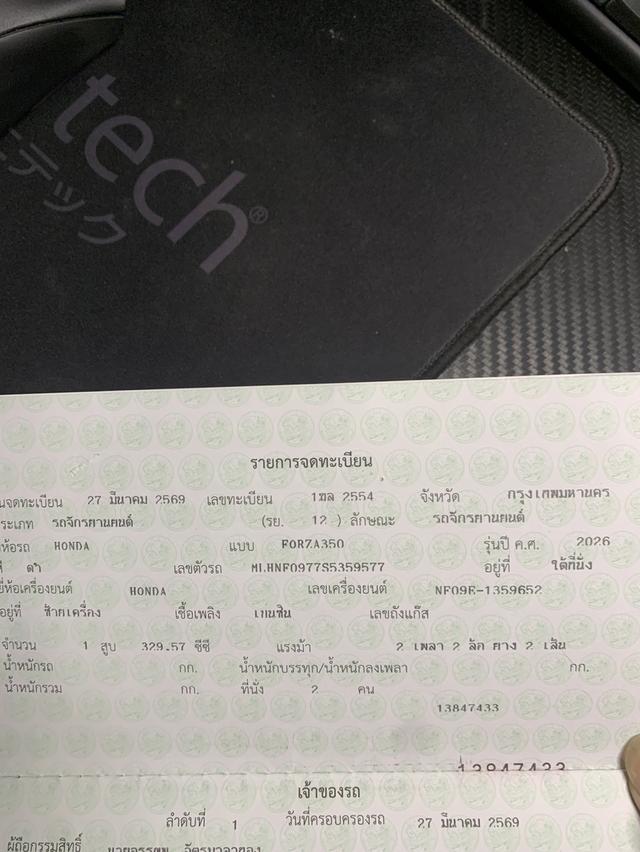 tech®
テック
รายการจดทะเบียน
นจดทะเบียน 27 มีนาคม 2569 เลขทะเบียน 1ฆล 2554 จังหวัด กรุงเทพมหานคร
ระเภท รถจักรยานยนต์ (รย. 12 ) ลักษณะ รถจักรยานยนต์
ห้อรถ HONDA แบบ FORZA350 รุ่นปี ค.ศ. 2026
ดำ เลขตัวรถ MLHNF0977S5359577 อยู่ที่ ใต้ที่นั่ง
ยี่ห้อเครื่องยนต์ HONDA เลขเครื่องยนต์ NF09E-1359652
อยู่ที่ ซ้ายเครื่อง เชื้อเพลิง เบนซิน เลขถังแก๊ส
จำนวน 1 สูบ 329.57 ซีซี แรงม้า 2 เพลา 2 ล้อ ยาง 2 เส้น
น้ำหนักรถ กก. น้ำหนักบรรทุก/น้ำหนักลงเพลา กก.
น้ำหนักรวม กก. ที่นั่ง 2 คน
13847433
13847433
เจ้าของรถ
ลำดับที่ 1 วันที่ครอบครองรถ 27 มีนาคม 2569
ผู้ถือกรรมสิทธิ์